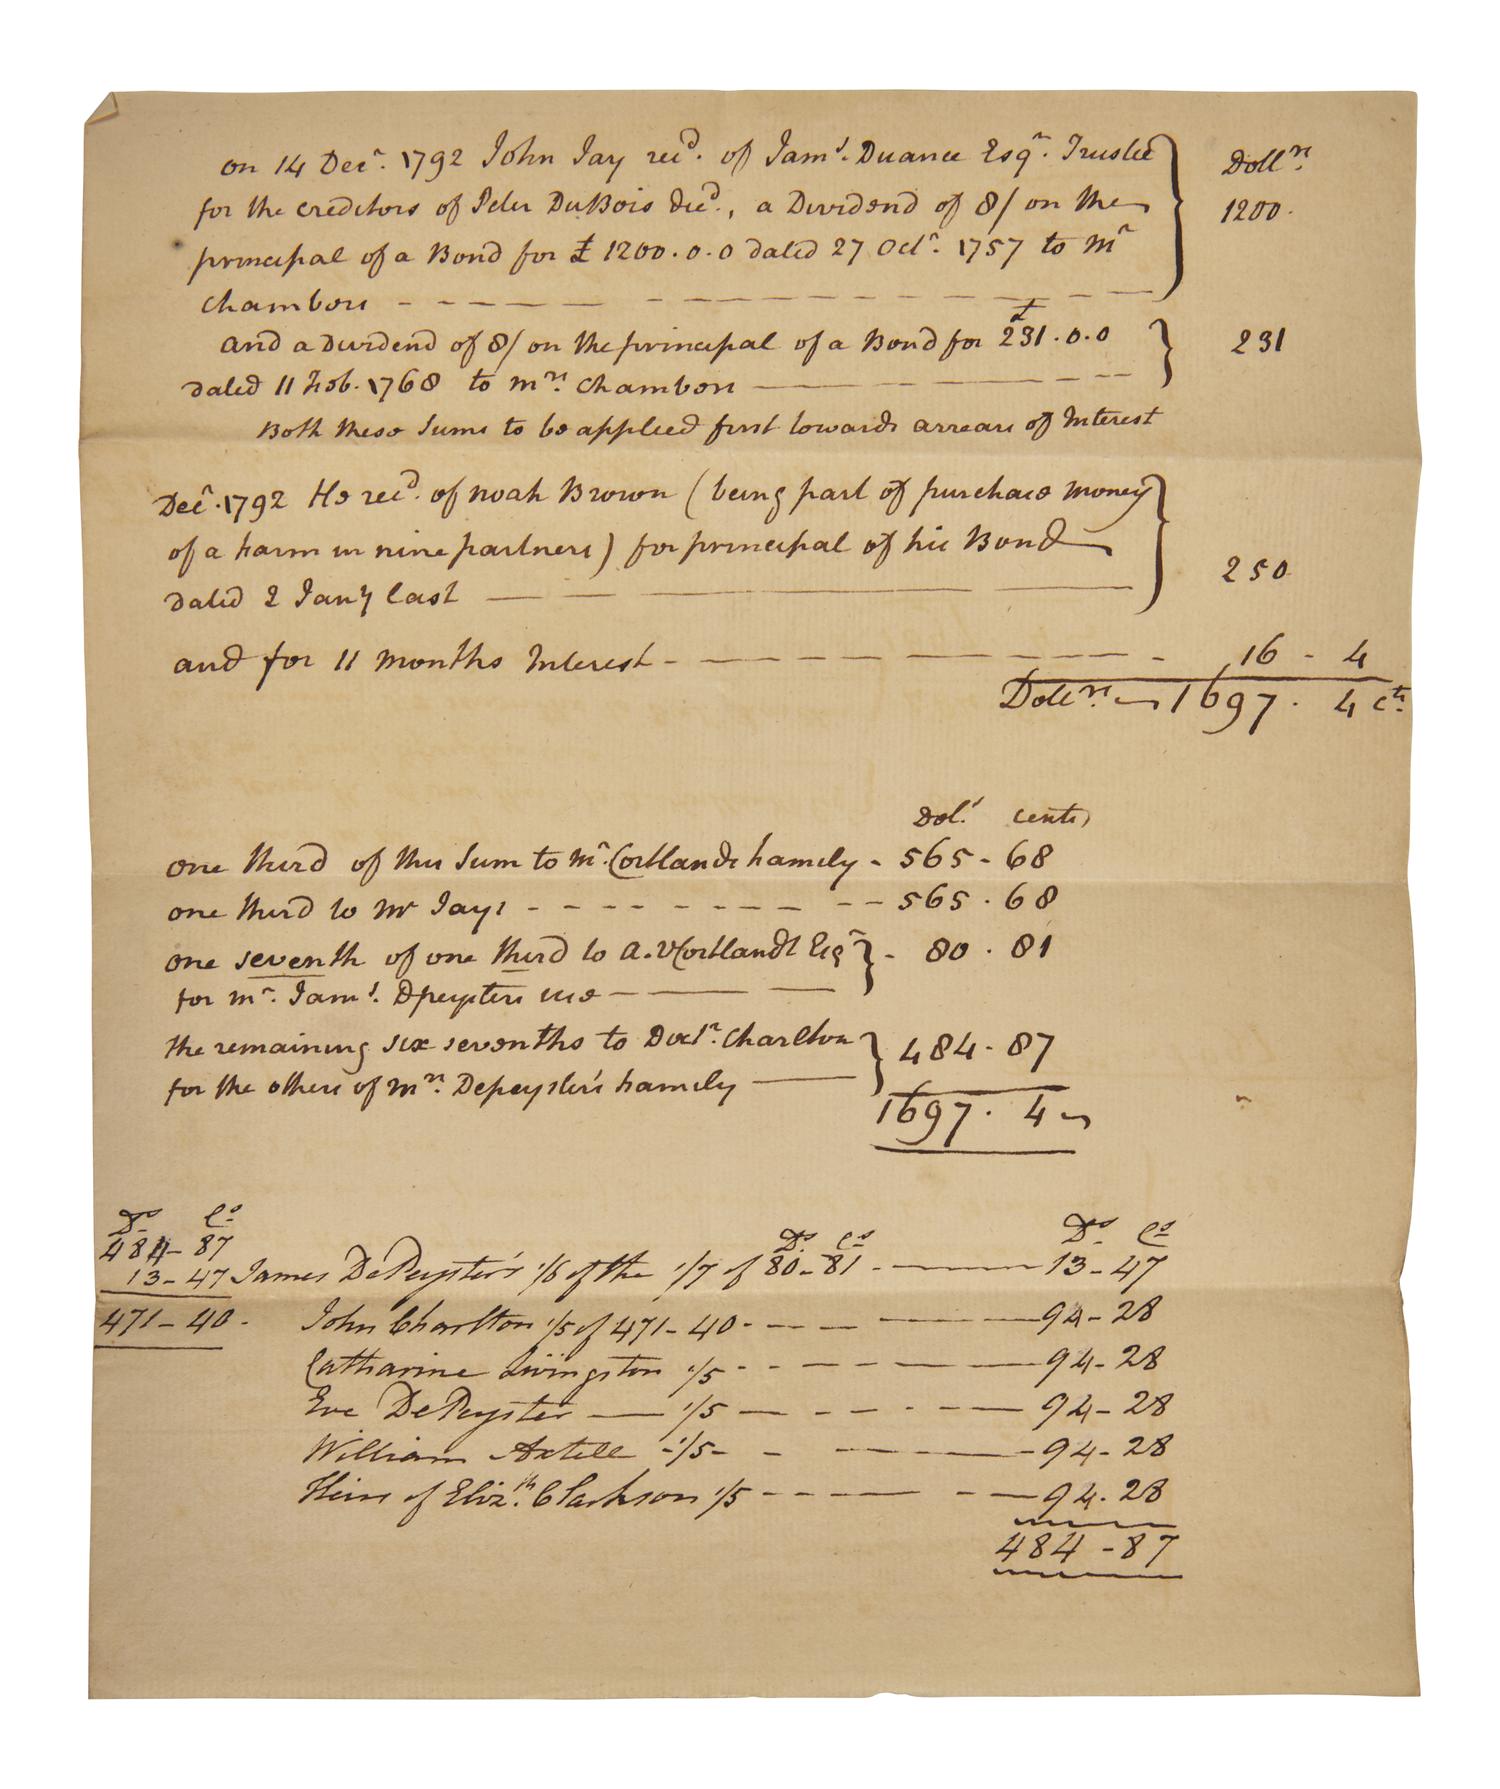 on 14 Decr. 1792 John Jay recd. of Jams. Duane Esqr. Trustee Dollrs.
for the creditors of Peter DuBois decd., a Dividend of 8/ on the 1200.
principal of a Bond for £ 1200.0.0 dated 27 Octr. 1757 to Mr
Chambers
and a Dividend of 8/ on the principal of a Bond for £ 231.0.0 231
dated 11 Feb. 1768 to mrs. Chambers
Both these Sums to be applied first towards arrears of Interest
Decr. 1792 He recd. of Noah Brown (being part of purchase money
of a Farm in nine partners) for principal of his Bond
dated 2 Jany last 250
and for 11 months Interest - 16 - 4
Dollrs. 1697. 4 cts.
Dols. cents
one third of this Sum to Mr. Cortlandts family - 565 - 68
one third to Mr Jays - 565 . 68
one seventh of one third to A. VCortlandt Esqr - 80 . 81
for mr. Jams. Dpeysters use
the remaining six sevenths to Doctr. Charlton 484 - 87
for the others of mrs. Depeyster's family
1697. 4
Ds. Cs.
484 - 87
13 - 47
471 - 40.
Ds. Cs. Ds. Cs.
James DePeyster's 1/6 of the 1/7 of 80 - 81 - 13 - 47
John Charlton 1/5 of 471 - 40 - 94 - 28
Catharine Livingston 1/5 - 94 - 28
Eve DePeyster 1/5 - 94 - 28
William Axtell - 1/5 - 94 - 28
Heirs of Elizth. Clarkson 1/5 - 94 . 28
484 - 87